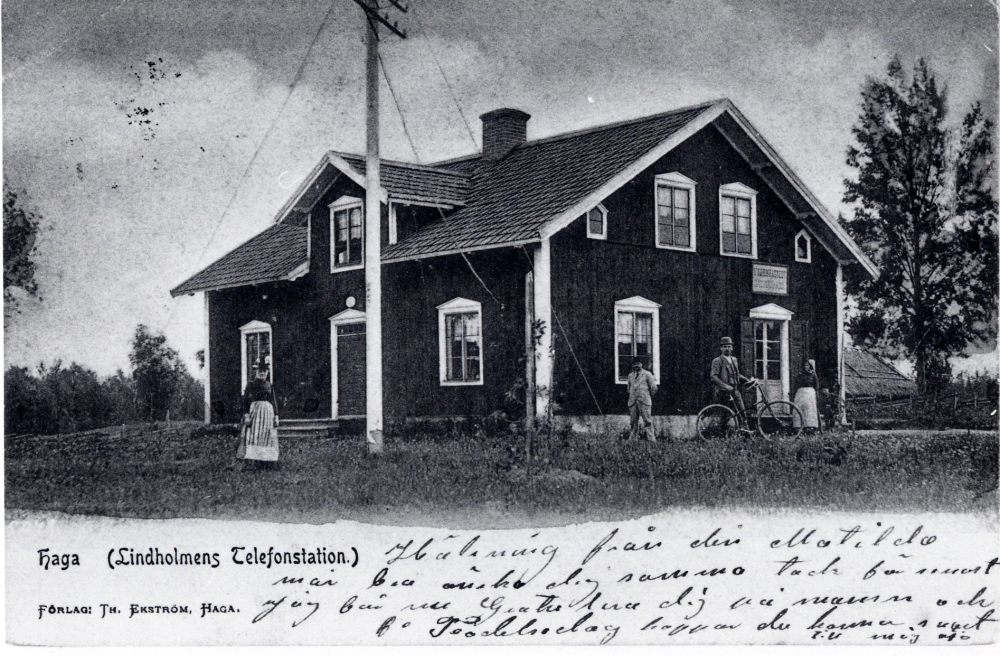 Haga (Lindholmens Telefonstation.)
FÖRLAG: TH. EKSTRÖM, HAGA.
Hälsning från din Matilda
mår bra önska dig samma tack för
Jag får nu Gratulera dig på namn och
Födelsedag hoppas du kommer snart
till mig